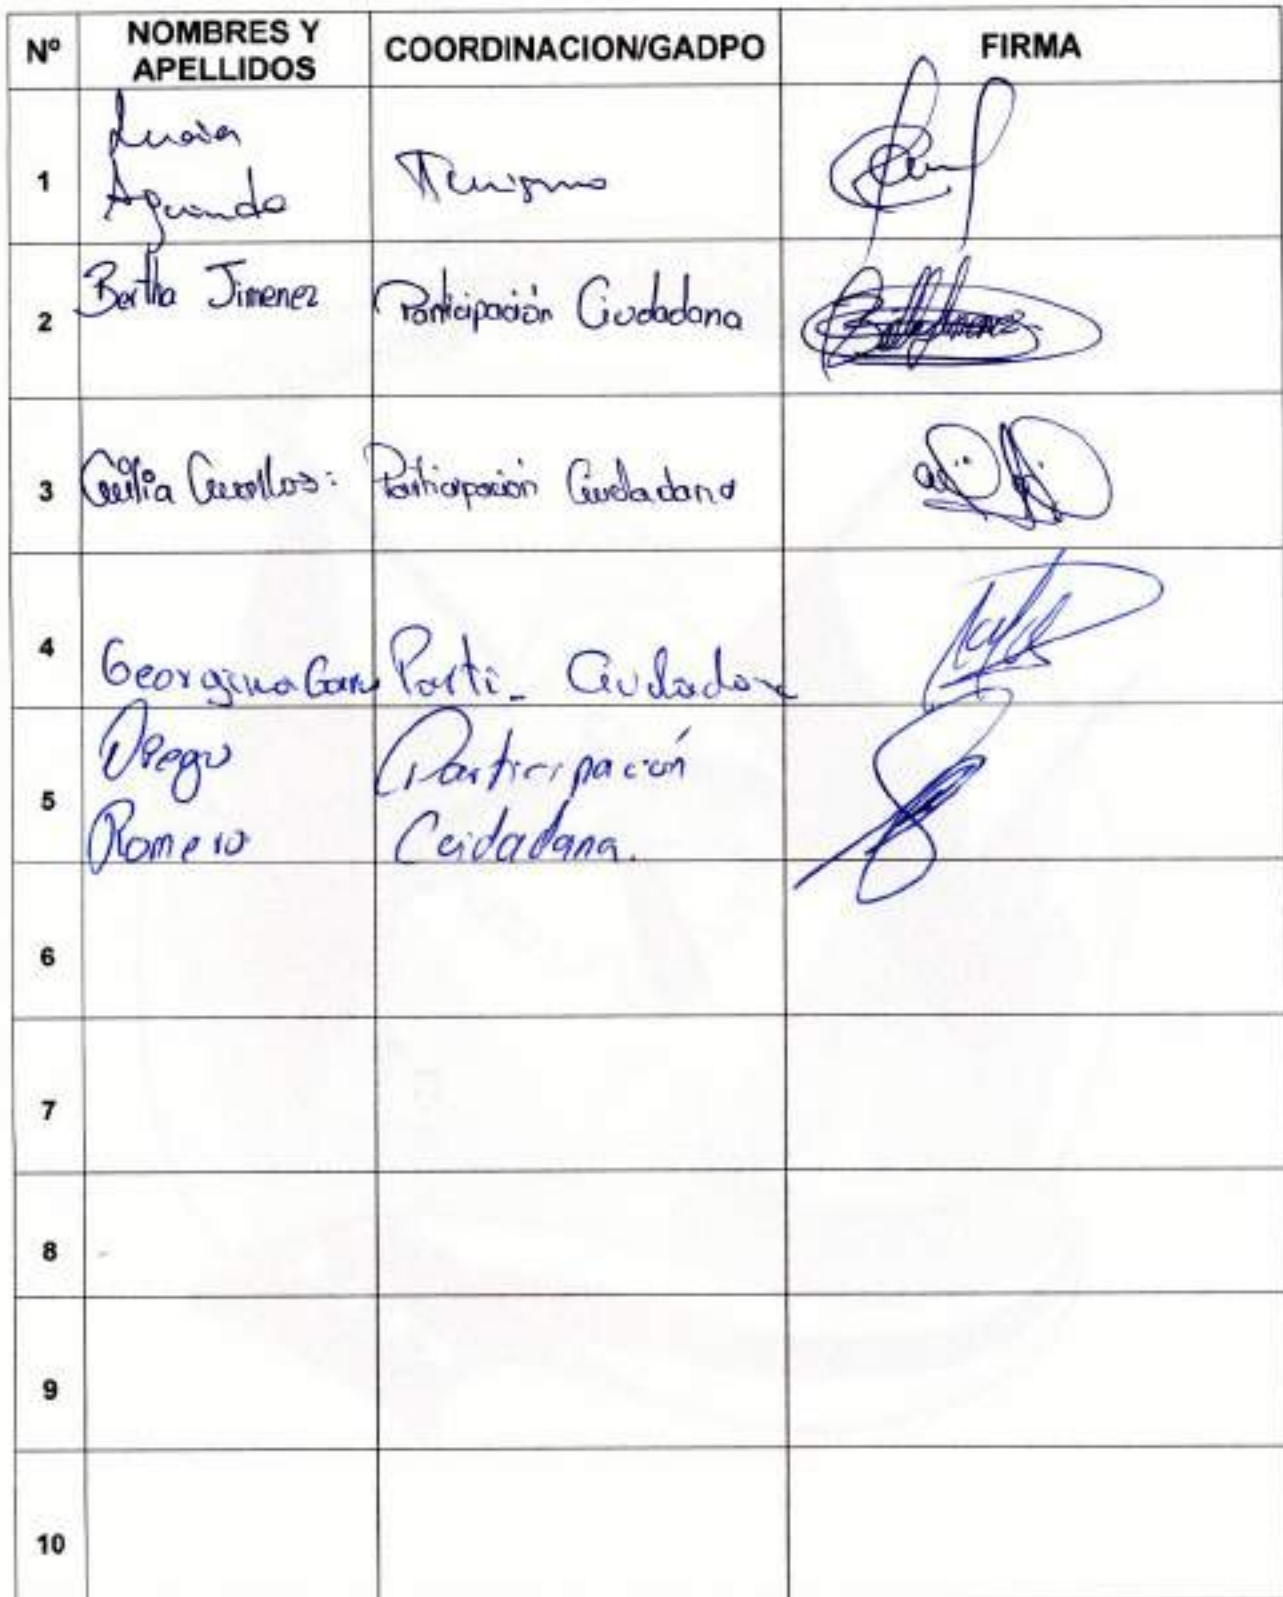 Nº NOMBRES Y APELLIDOS COORDINACION/GADPO FIRMA
1 Lucia Aguinda Turismo
2 Bertha Jimenez Participación Ciudadana
3 Participación Ciudadana
4 Georgina Parti_ Ciudadana
5 Diego Romero Participación Ciudadana.
6
7
8
9
10